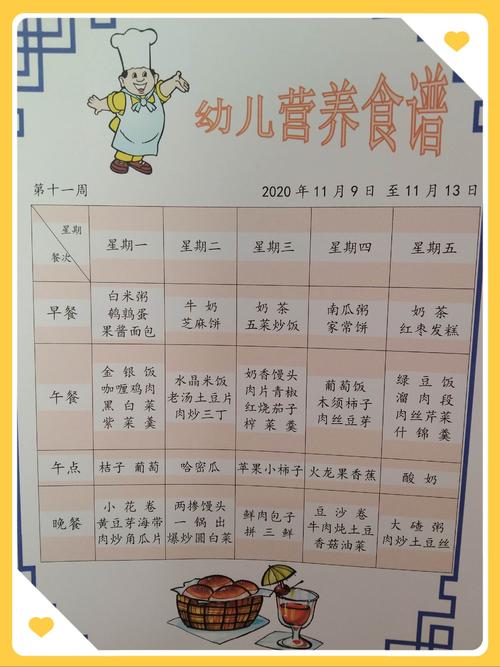 幼儿营养食谱
第十一周 2020年11月9日 至11月13日
星期
餐次
星期一 星期二 星期三 星期四 星期五
早餐
白米粥
鹌鹑蛋
果酱面包
牛 奶
芝麻饼
奶 茶
五菜炒饭
南瓜粥
家常饼
奶 茶
红枣发糕
午餐
金 银 饭
咖喱鸡肉
黑 白 菜
紫 菜 羹
水晶米饭
老汤土豆片
肉炒三丁
奶香馒头
肉片青椒
红烧茄子
榨 菜 羹
葡萄饭
木须柿子
肉丝豆芽
绿 豆 饭
溜 肉 段
肉丝芹菜
什 锦 羹
午点
桔子 葡萄
哈密瓜
苹果小柿子
火龙果香蕉
酸 奶
晚餐
小 花 卷
黄豆芽海带
肉炒角瓜片
两掺馒头
一 锅 出
爆炒圆白菜
鲜肉包子
拼 三 鲜
豆 沙 卷
牛肉炖土豆
香菇油菜
大 碴 粥
肉炒土豆丝